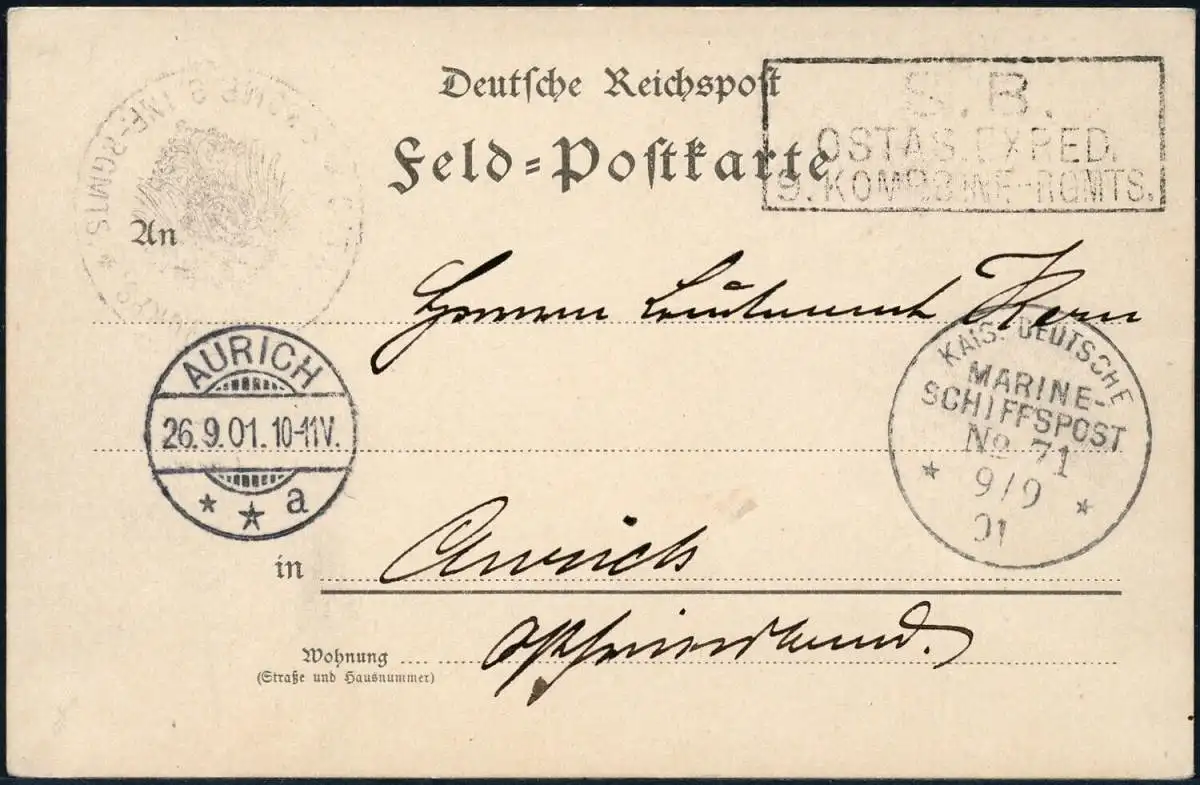 Deutsche Reichspost
Feld-Postkarte
S. B.
OSTAS. EXPED.
9. KOMP. 3. INF.-RGMTS.
An
Herrn Leutnant Kern
AURICH
26.9.01. 10-11V.
* * a
KAIS. DEUTSCHE
MARINE-
SCHIFFSPOST
No 71
* 9/9 *
01
in Aurich
Ostfriesland.
Wohnung
(Straße und Hausnummer)
INF-RGMTS. *